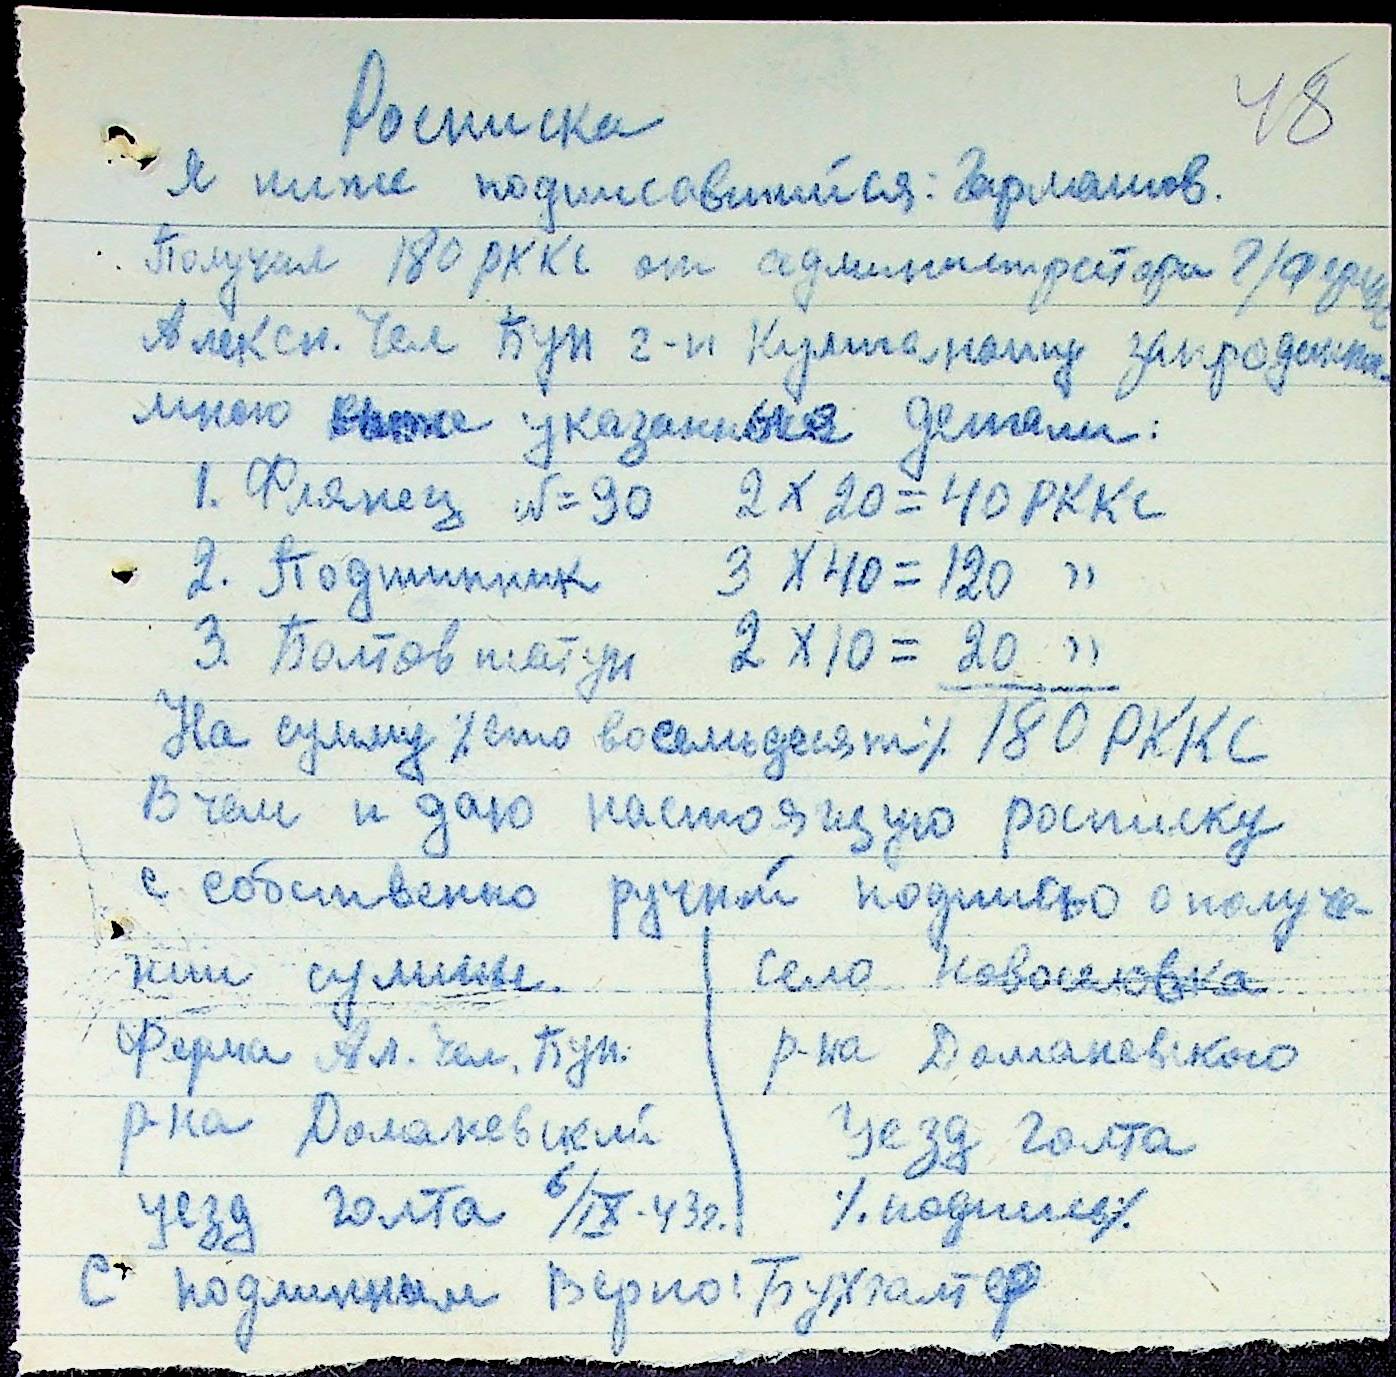 48
Росписка
Я ниже подписавшийся: Гармашов.
Получил 180 РККС от администратора Г/Ферм
Алексн. Чел Бун г-н Кулиш за проданн.
мною ниже указанные детали:
1. Флянец W=90 2 X 20 = 40 РККС
2. Подшипник 3 X 40 = 120 "
3. Болтов шатун 2 X 10 = 20 "
На сумму ٪сто восемьдесят٪ 180 РККС
В чем и даю настоящую росписку
с собственно ручной подписью о получе-
нии суммы.
Ферма Ал. Чел. Бун.
р-на Доманевский
уезд Голта 6/IX-43г.
Село Новоселовка
р-на Доманевского
Уезд Голта
٪подпись٪
С подлинным Верно: Бухгалтер